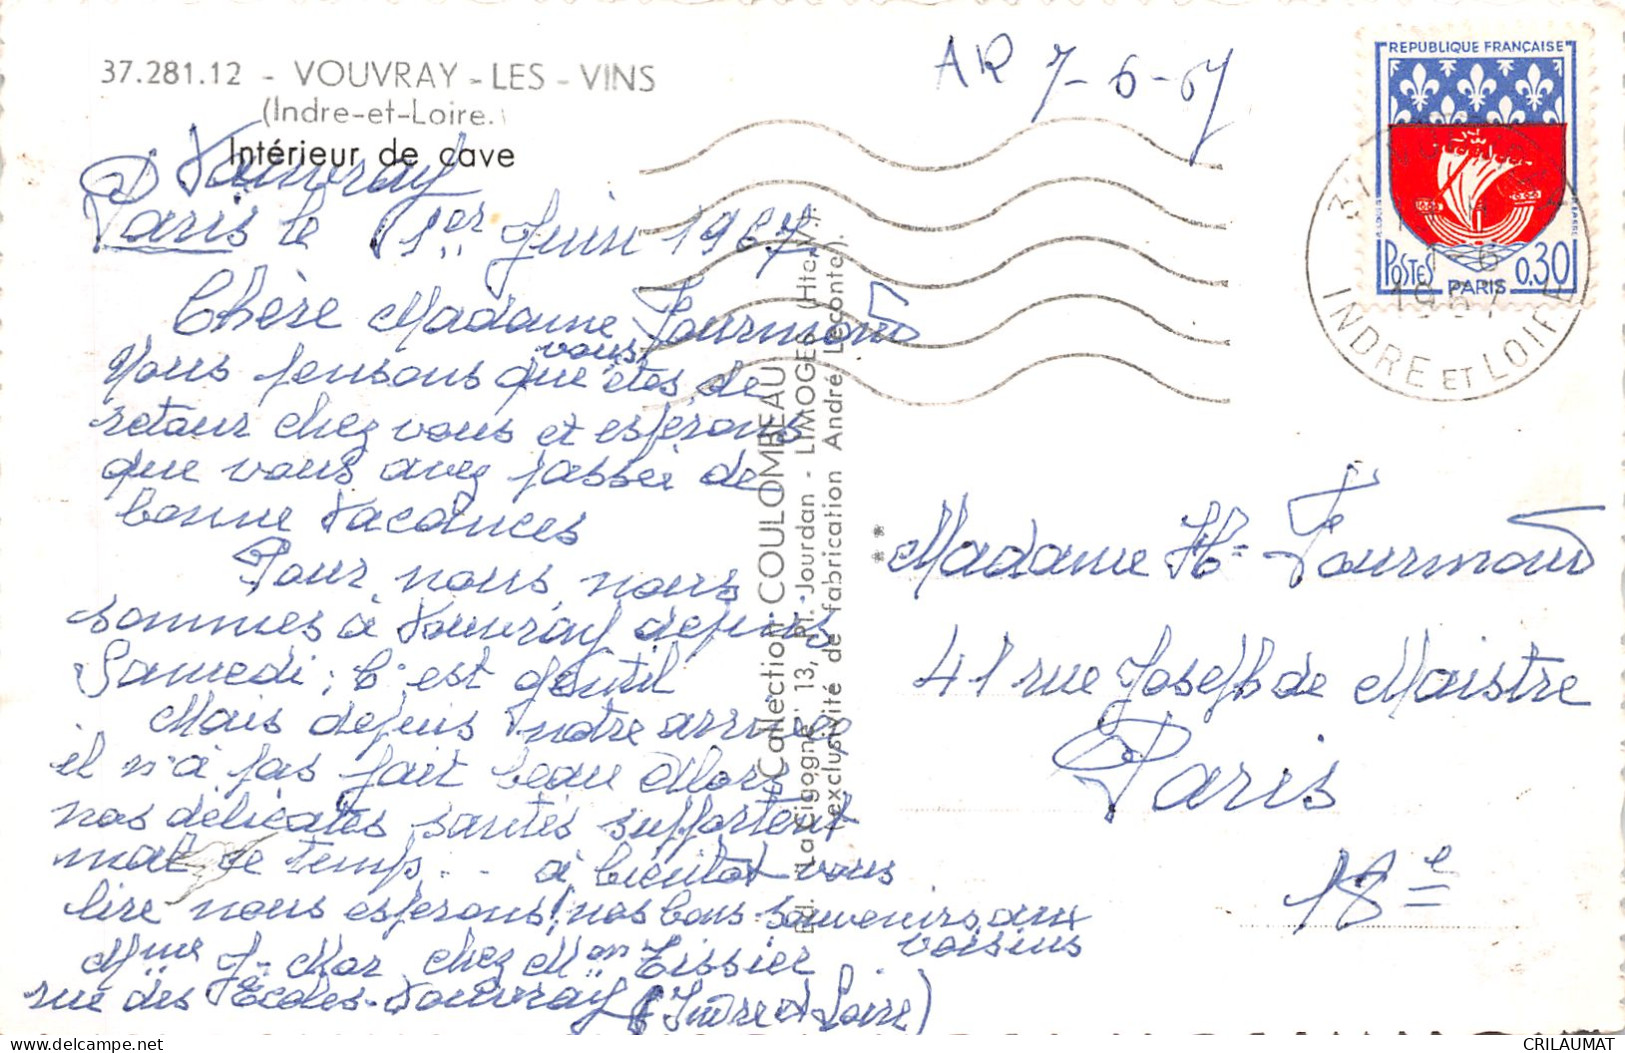 37.281.12 - VOUVRAY - LES - VINS
(Indre-et-Loire.)
Intérieur de cave
AR 7-6-67
REPUBLIQUE FRANÇAISE
POSTES
0,30
PARIS
1967
INDRE ET LOIRE
Vouvray
Paris le 1er Juin 1967
Chère Madame Fourmond
Nous pensons que vous êtes de
retour chez vous et esperons
que vous avez passée de
bonne Vacances
Pour nous nous
sommes à Vouvray depuis
Samedi, C'est gentil
Mais depuis notre arrivée
il n'à pas fait beau Alors
nos délicates santés supportent
mal ce temps... à bientot vous
lire nous esperons! nos bons souvenirs aux
voisins
Mme J- Mor chez Mon Tissier
rue des Ecoles-Vouvray (Indre et Loire)
Collection COULOMBEAU
Ed. "La Cigogne" 13, Pl. Jourdan - LIMOGES (Hte-V.).
exclusivité de fabrication André Leconte).
**
Madame H- Fourmond
41 rue Joseph de Maistre
Paris
18e
CRILAUMAT